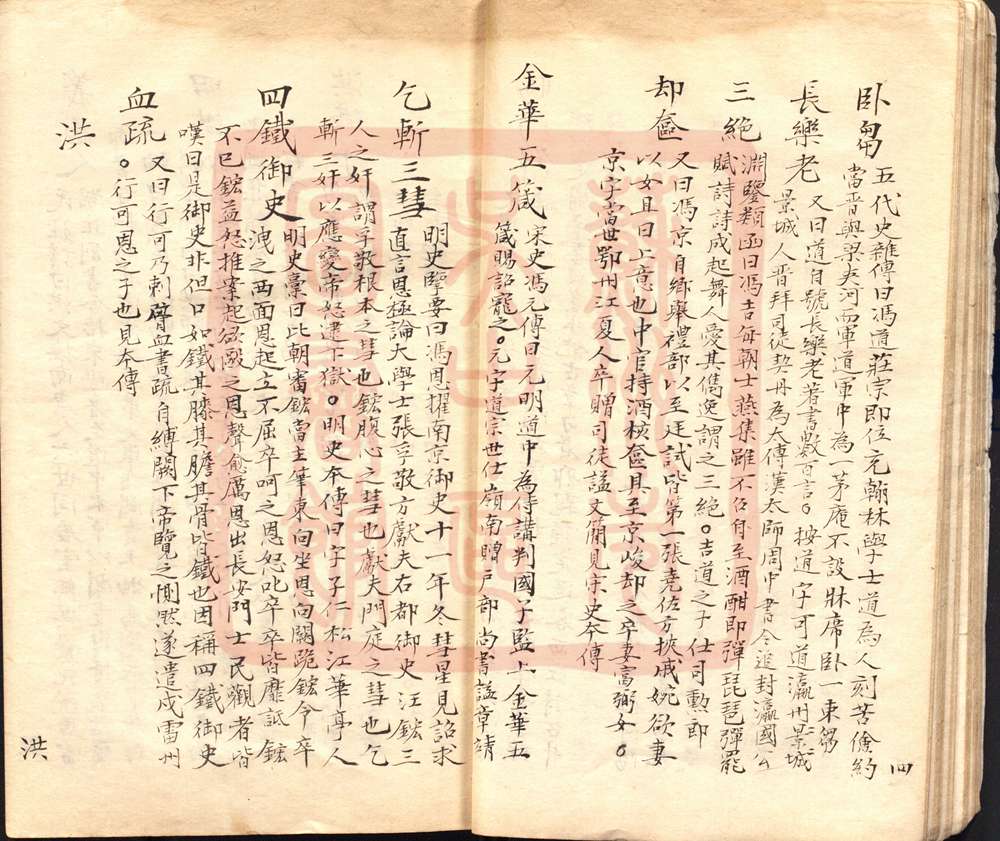 卧芻 五代史雜傳曰馮道莊宗即位充翰林學士道為人刻苦儉約
當晋與梁夹河而軍道軍中為一茅庵不設牀席卧一束芻
長樂老 又曰道自號長樂老著書數百言。按道字可道瀛州景城
景城人晋拜司徒契丹為太傅漢太師周中書令追封瀛國公
三絶 淵鑒類函曰馮吉每朝士燕集雖不召自至酒酣即彈琵琶彈罷
賦詩詩成起舞人愛其儁逸謂之三絶。吉道之子仕司勲郎
却奩 又曰馮京自鄉舉禮部以至廷試皆第一張堯佐方挾戚婉欲妻
以女且曰上意也中官持酒核奩具至京峻却之卒妻富弼女。
京字當世鄂州江夏人卒贈司徒謚文簡見宋史夲傳
金華五箴 宋史馮元傳曰元明道中為侍講判國子監上金華五
箴賜詔寵之。元字道宗世仕嶺南贈戶部尚書謚章靖
乞斬三彗 明史擥要曰馮恩擢南京御史十一年冬彗星見詔求
直言恩極論大學士張孚敬方獻夫右都御史汪鋐三
人之奸 謂孚敬根本之彗也鋐腹心之彗也獻夫門庭之彗也乞
斬三奸以應變帝怒逮下獄。明史夲傳曰字子仁松江華亭人
四鐵御史 明史稾曰比朝審鋐當主筆東向坐恩向闕跪鋐令卒
洩之西面恩起立不屈卒呵之恩怒叱卒卒皆靡詆鋐
不已鋐益怒推案起欲毆之恩聲愈厲恩出長安門士民觀者皆
嘆曰是御史非但口如鐵其膝其膽其骨皆鐵也因稱四鐵御史
血疏 又曰行可乃刺臂血書疏自縛闕下帝覽之惻然遂遣戍雷州
。行可恩之子也見夲傳
洪
四
洪